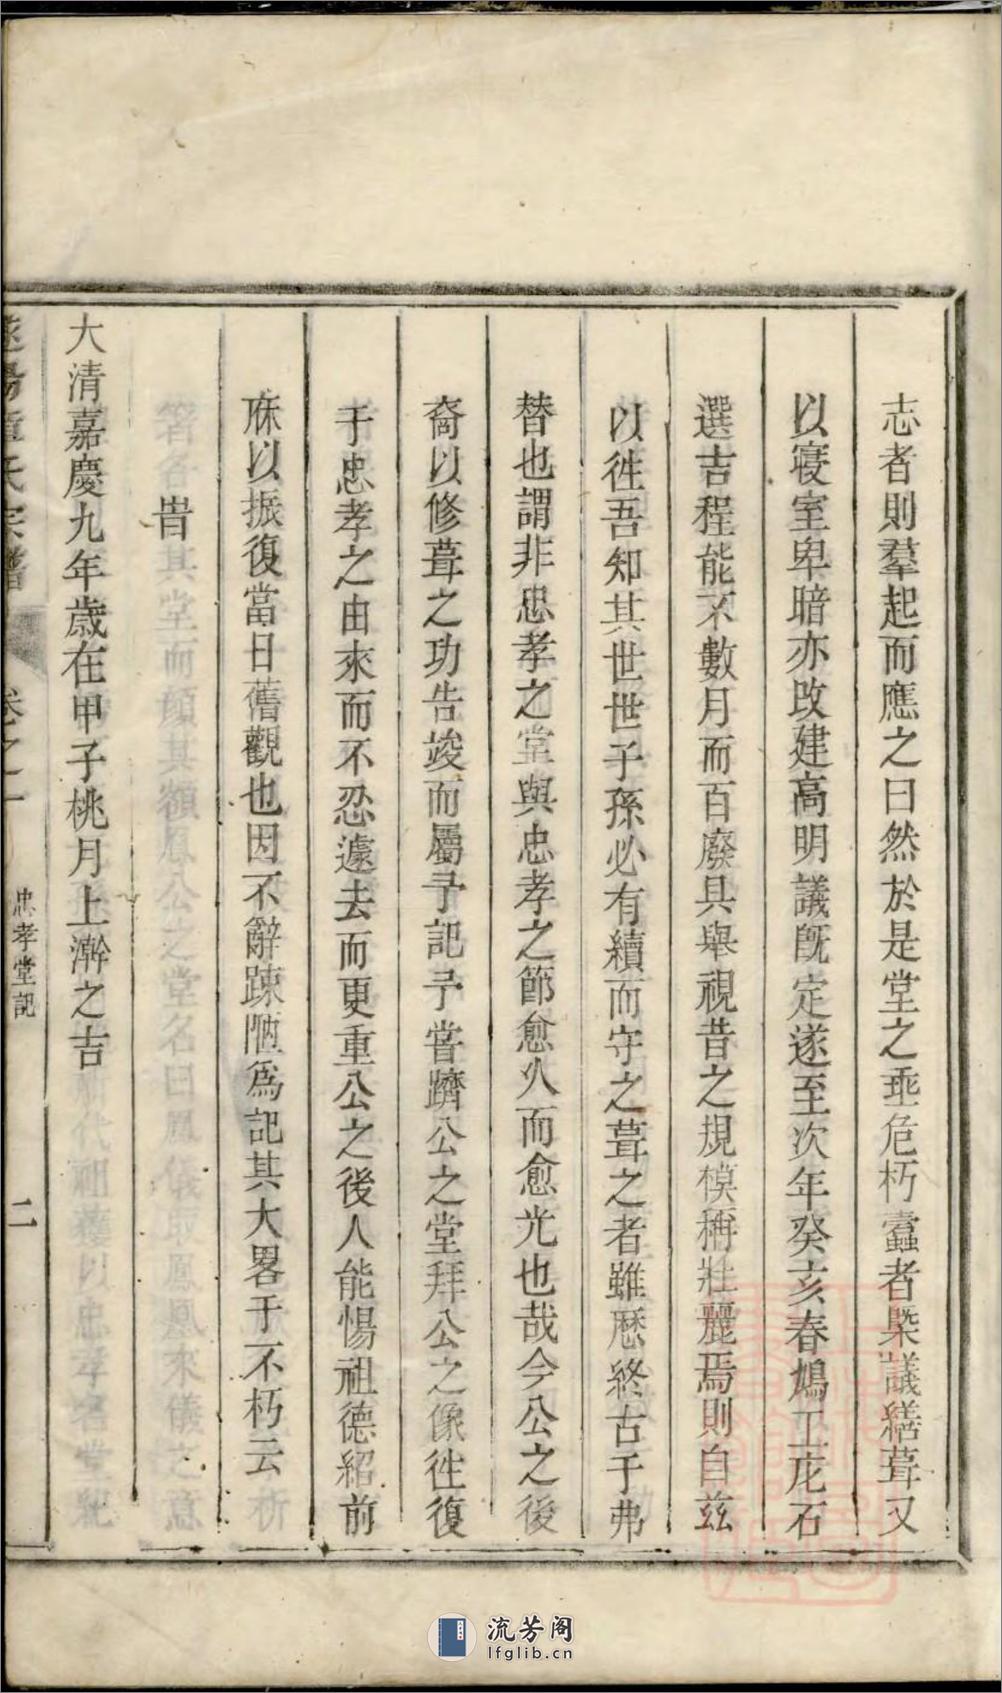 志者則羣起而應之曰然於是堂之垂危朽蠹者槩議繕葺又
以寢室卑暗亦改建高明議旣定遂至次年癸亥春鳩工庀石
選吉程能不數月而百廢具舉視昔之規模稱壯麗焉則自兹
以徃吾知其世世子孫必有續而守之葺之者雖歷終古于弗
替也謂非忠孝之堂與忠孝之節愈久而愈光也哉今公之後
裔以修葺之功告竣而屬予記予嘗躋公之堂拜公之像徃復
于忠孝之由來而不忍遽去而更重公之後人能惕祖德紹前
庥以振復當日舊觀也因不辭踈陋爲記其大畧于不朽云
旹
大清嘉慶九年歲在甲子桃月上澣之吉
氏宗譜 卷之一 忠孝堂記 二
流芳阁
lfglib.cn